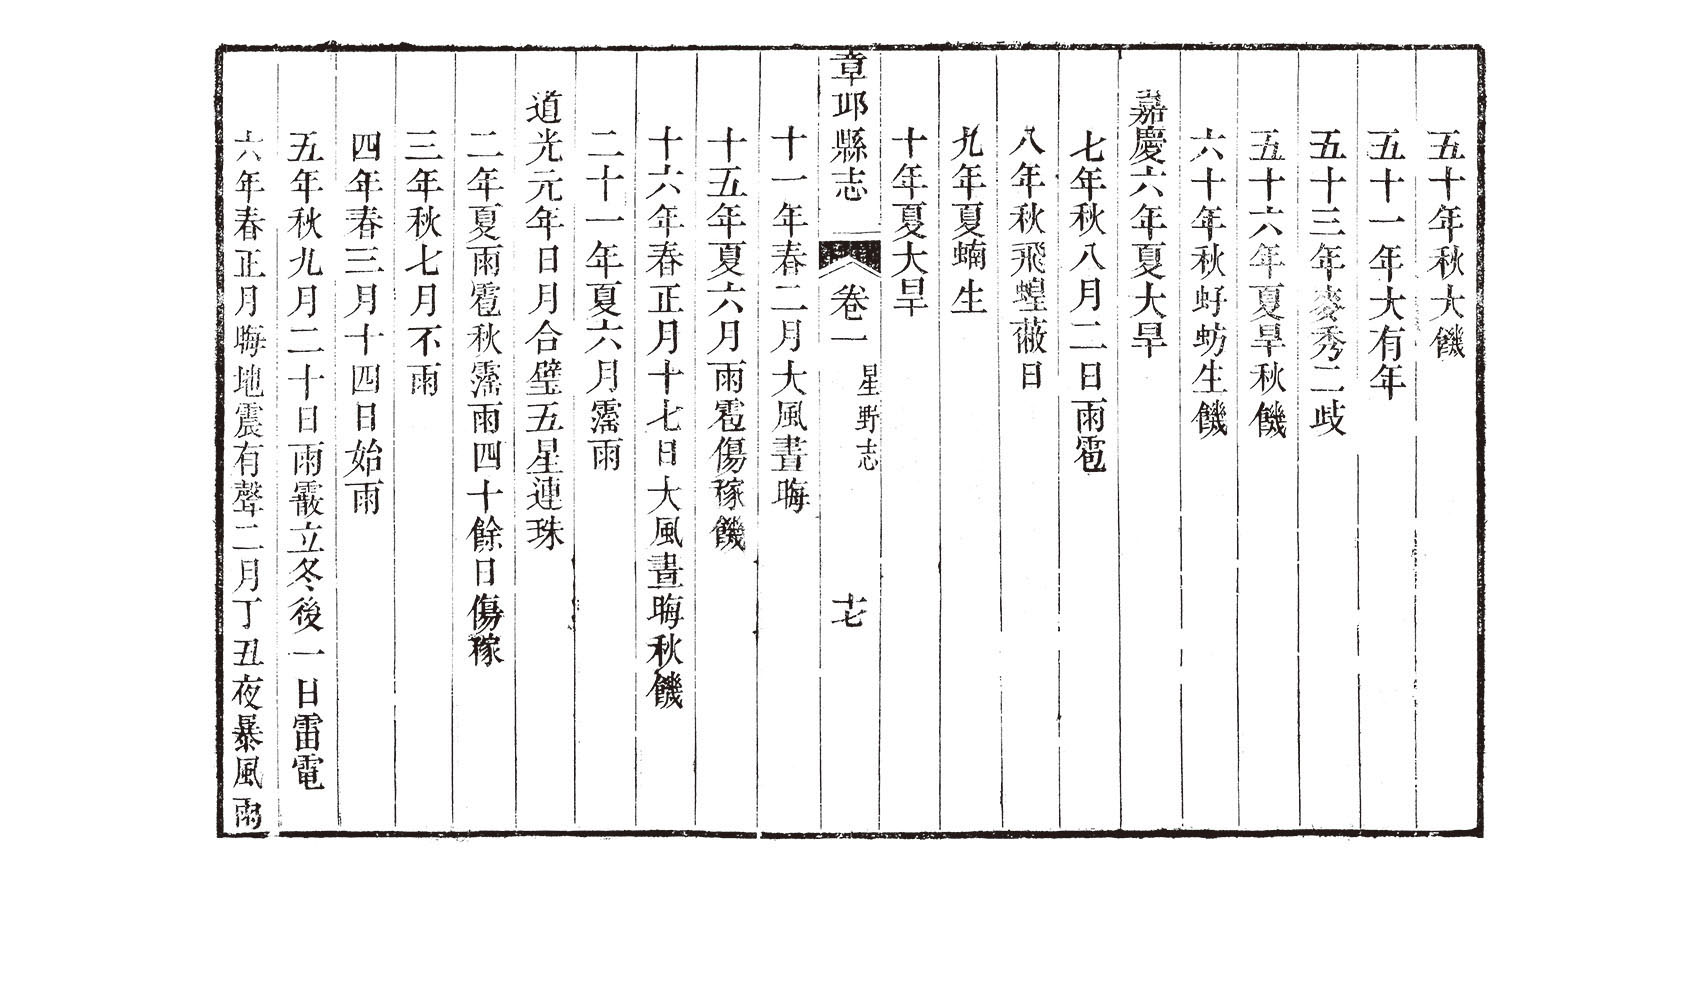 五十年秋大饑
五十一年大有年
五十三年麥秀二歧
五十六年夏旱秋饑
六十年秋虸蚄生饑
嘉慶六年夏大旱
七年秋八月二日雨雹
八年秋飛蝗蔽日
九年夏蝻生
十年夏大旱
章邱縣志 卷一 星野志 十七
十一年春二月大風晝晦
十五年夏六月雨雹傷稼饑
十六年春正月十七日大風晝晦秋饑
二十一年夏六月霪雨
道光元年日月合璧五星連珠
二年夏雨雹秋霪雨四十餘日傷稼
三年秋七月不雨
四年春三月十四日始雨
五年秋九月二十日雨霰立冬後一日雷電
六年春正月晦地震有聲二月丁丑夜暴風雨